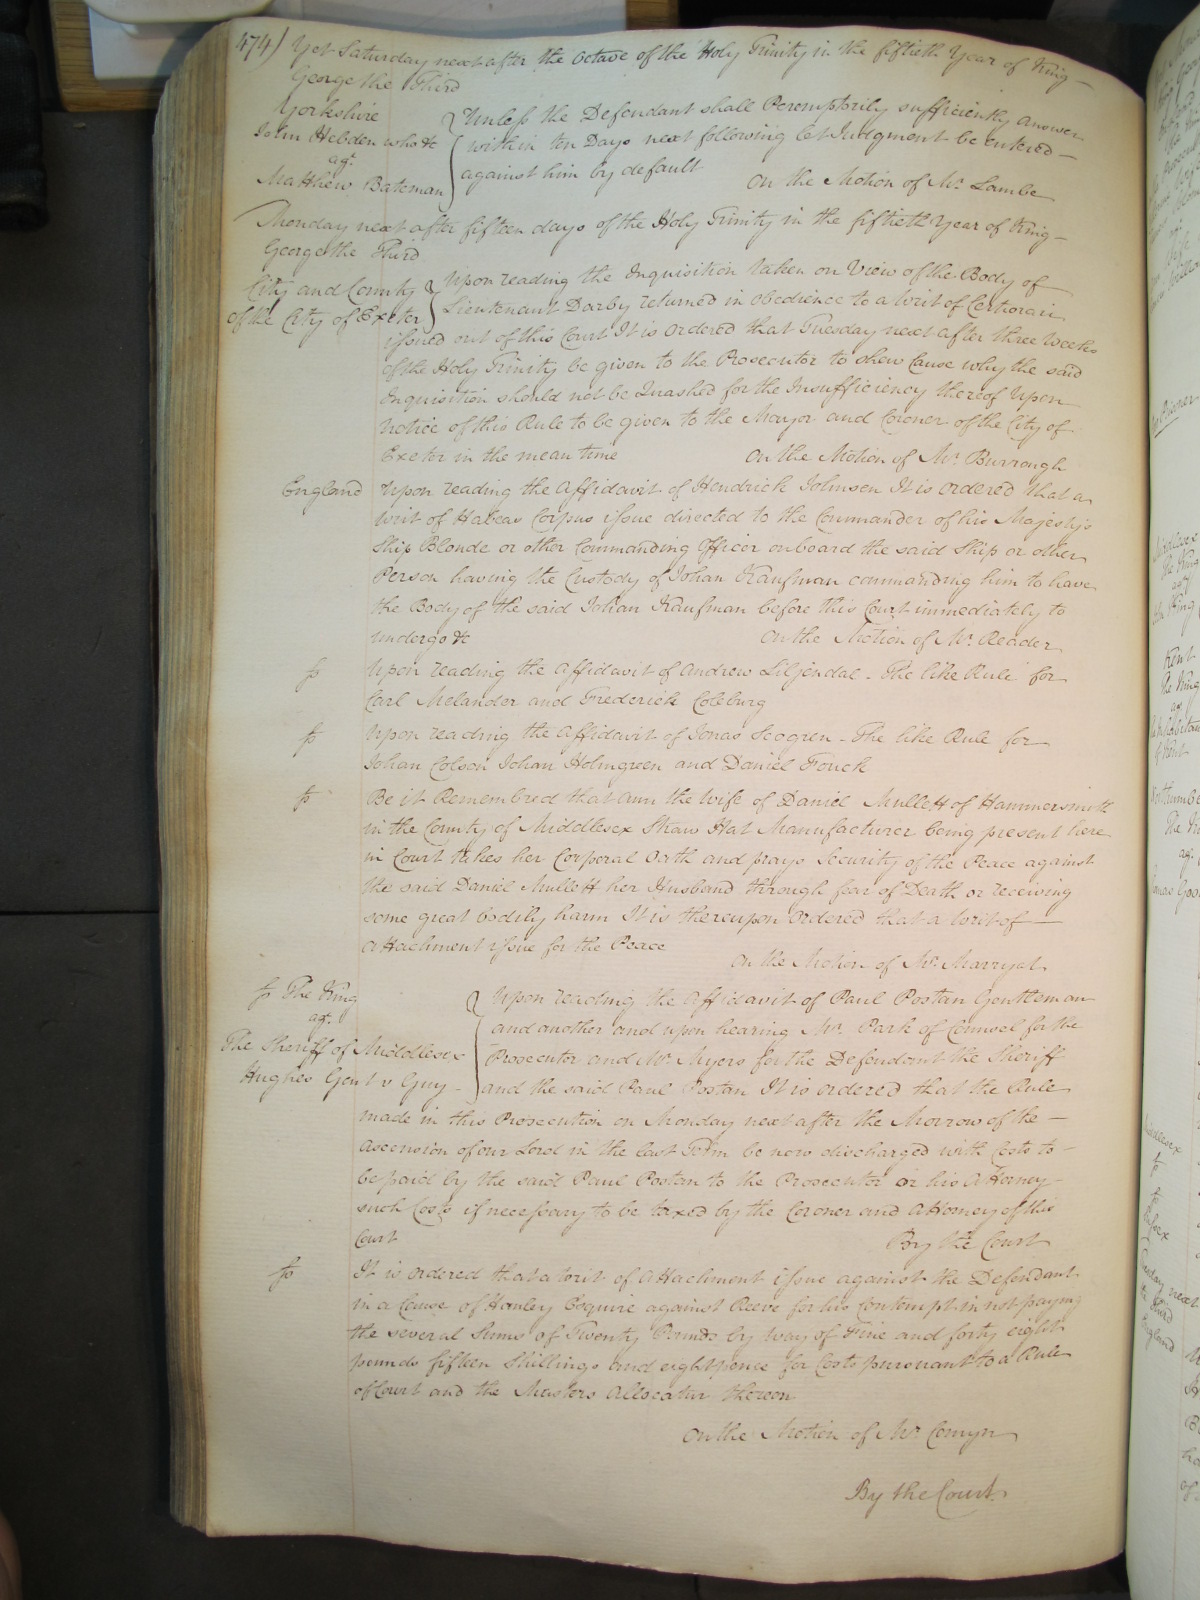 474) Yet Saturday next after the Octave of the Holy Trinity in the fiftieth Year of King
George the Third
Yorkshire
John Hebden who &c
agt.
Matthew Bateman
Unless the Defendant shall Peremptorily sufficiently answer
within ten Days next following let Judgment be entered
against him by default
On the Motion of Mr. Lambe
Monday next after fifteen days of the Holy Trinity in the fiftieth Year of King
George the Third
City and County
of the City of Exeter
Upon reading the Inquisition taken on View of the Body of
Lieutenant Darby returned in obedience to a Writ of Certiorari
issued out of this Court It is Ordered that Tuesday next after three Weeks
of the Holy Trinity be given to the Prosecutor to shew Cause why the said
Inquisition should not be Quashed for the Insufficiency thereof Upon
notice of this Rule to be given to the Mayor and Coroner of the City of
Exeter in the mean time
On the Motion of Mr. Burrough
England
Upon reading the Affidavit of Hendrick Johnsen It is Ordered that a
Writ of Habeas Corpus issue directed to the Commander of his Majesty's
Ship Blonde or other Commanding Officer onboard the said Ship or other
Person having the Custody of Johan Kaufman commanding him to have
the Body of the said Johan Kaufman before this Court immediately to
undergo &c
On the Motion of Mr. Reader
Upon reading the Affidavit of Andrew Liljendal - The like Rule for
Carl Melander and Frederick Coleburg
Upon reading the Affidavit of Jonas Scogren - The like Rule for
Johan Colson Johan Holmgreen and Daniel Fouck
Be it Remembred that Ann the Wife of Daniel Mullett of Hammersmith
in the County of Middlesex Straw Hat Manufacturer being present here
in Court takes her Corporal Oath and prays Security of the Peace against
the said Daniel Mullett her Husband through fear of Death or receiving
some great bodily harm It is thereupon Ordered that a Writ of
Attachment issue for the Peace
On the Motion of Mr. Marryat
The King
agt.
The Sheriff of Middlesex
Hughes Gent v Guy
Upon reading the Affidavit of Paul Postan Gentleman
and another and upon hearing Mr. Park of Counsel for the
Prosecutor and Mr. Myers for the Defendant the Sheriff
and the said Paul Postan It is Ordered that the Rule
made in this Prosecution on Monday next after the Morrow of the
Ascension of our Lord in the last Term be now discharged with Costs to
be paid by the said Paul Postan to the Prosecutor or his Attorney
such Costs if necessary to be taxed by the Coroner and Attorney of this
Court
By the Court
It is Ordered that a Writ of Attachment issue against the Defendant
in a Cause of Hanley Esquire against Reeve for his Contempt in not paying
the several Sums of Twenty Pounds by way of Fine and forty eight
pounds fifteen Shillings and eightpence for Costs pursuant to a Rule
of Court and the Masters Allocatur thereon
On the Motion of Mr Comyn
By the Court